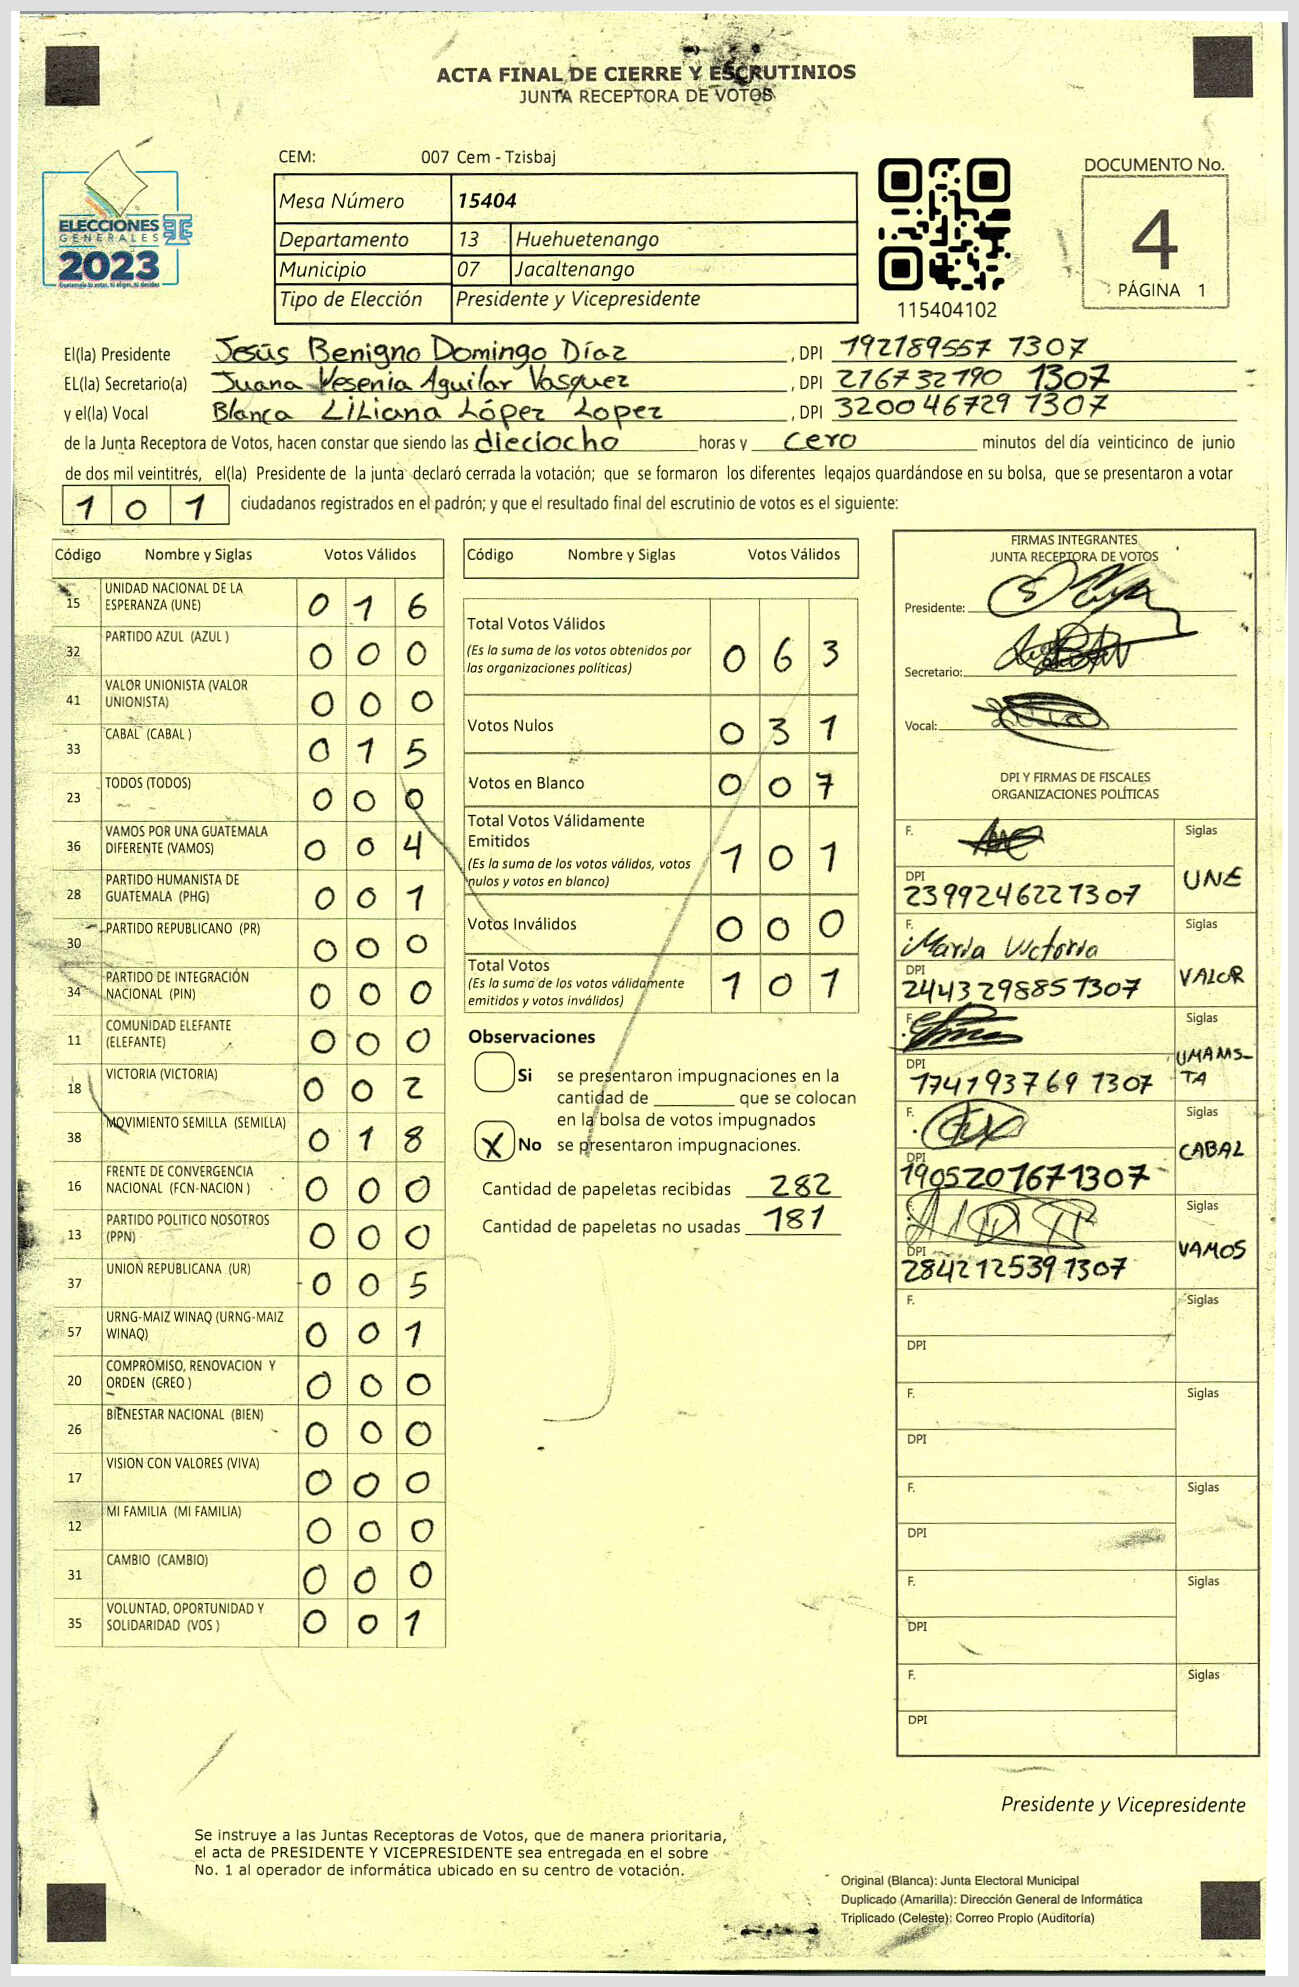 ACTA FINAL DE CIERRE Y ESCRUTINIOS
JUNTA RECEPTORA DE VOTOS
CEM: 007 Cem - Tzisbaj
ELECCIONES
GENERALES
2023
Guatemala tú votas, tú eliges, tú decides
Mesa Número 15404
Departamento 13 Huehuetenango
Municipio 07 Jacaltenango
Tipo de Elección Presidente y Vicepresidente
115404102
DOCUMENTO No.
4
PÁGINA 1
El(la) Presidente Jesús Benigno Domingo Díaz , DPI 192189557 1307
EL(la) Secretario(a) Juana Yesenia Aguilar Vasquez , DPI 216732190 1307
y el(la) Vocal Blanca LiLiana López Lopez , DPI 320046729 1307
de la Junta Receptora de Votos, hacen constar que siendo las dieciocho horas y cero minutos del día veinticinco de junio
de dos mil veintitrés, el(la) Presidente de la junta declaró cerrada la votación; que se formaron los diferentes legajos guardándose en su bolsa, que se presentaron a votar
1 0 1 ciudadanos registrados en el padrón; y que el resultado final del escrutinio de votos es el siguiente:
Código Nombre y Siglas Votos Válidos
15 UNIDAD NACIONAL DE LA ESPERANZA (UNE) 0 1 6
32 PARTIDO AZUL (AZUL ) 0 0 0
41 VALOR UNIONISTA (VALOR UNIONISTA) 0 0 0
33 CABAL (CABAL ) 0 1 5
23 TODOS (TODOS) 0 0 0
36 VAMOS POR UNA GUATEMALA DIFERENTE (VAMOS) 0 0 4
28 PARTIDO HUMANISTA DE GUATEMALA (PHG) 0 0 1
30 PARTIDO REPUBLICANO (PR) 0 0 0
34 PARTIDO DE INTEGRACIÓN NACIONAL (PIN) 0 0 0
11 COMUNIDAD ELEFANTE (ELEFANTE) 0 0 0
18 VICTORIA (VICTORIA) 0 0 2
38 MOVIMIENTO SEMILLA (SEMILLA) 0 1 8
16 FRENTE DE CONVERGENCIA NACIONAL (FCN-NACION ) 0 0 0
13 PARTIDO POLITICO NOSOTROS (PPN) 0 0 0
37 UNION REPUBLICANA (UR) 0 0 5
57 URNG-MAIZ WINAQ (URNG-MAIZ WINAQ) 0 0 1
20 COMPROMISO, RENOVACION Y ORDEN (CREO ) 0 0 0
26 BIENESTAR NACIONAL (BIEN) 0 0 0
17 VISION CON VALORES (VIVA) 0 0 0
12 MI FAMILIA (MI FAMILIA) 0 0 0
31 CAMBIO (CAMBIO) 0 0 0
35 VOLUNTAD, OPORTUNIDAD Y SOLIDARIDAD (VOS ) 0 0 1
Código Nombre y Siglas Votos Válidos
Total Votos Válidos 0 6 3
(Es la suma de los votos obtenidos por
las organizaciones políticas)
Votos Nulos 0 3 1
Votos en Blanco 0 0 7
Total Votos Válidamente
Emitidos 1 0 1
(Es la suma de los votos válidos, votos
nulos y votos en blanco)
Votos Inválidos 0 0 0
Total Votos 1 0 1
(Es la suma de los votos válidamente
emitidos y votos inválidos)
Observaciones
Si se presentaron impugnaciones en la
cantidad de ________ que se colocan
en la bolsa de votos impugnados
X No se presentaron impugnaciones.
Cantidad de papeletas recibidas 282
Cantidad de papeletas no usadas 181
FIRMAS INTEGRANTES
JUNTA RECEPTORA DE VOTOS
Presidente:
Secretario:
Vocal:
DPI Y FIRMAS DE FISCALES
ORGANIZACIONES POLÍTICAS
F. Siglas
DPI UNE
239924622 1307
F. Maria Victoria Siglas
DPI VALOR
244329885 1307
F. Siglas
DPI UMANIS-
TA
174193769 1307
F. Siglas
DPI CABAL
190520167 1307
F. Siglas
DPI VAMOS
284212539 1307
F. Siglas
DPI
F. Siglas
DPI
F. Siglas
DPI
F. Siglas
DPI
F. Siglas
DPI
Presidente y Vicepresidente
Se instruye a las Juntas Receptoras de Votos, que de manera prioritaria,
el acta de PRESIDENTE Y VICEPRESIDENTE sea entregada en el sobre
No. 1 al operador de informática ubicado en su centro de votación.
Original (Blanca): Junta Electoral Municipal
Duplicado (Amarilla): Dirección General de Informática
Triplicado (Celeste): Correo Propio (Auditoría)